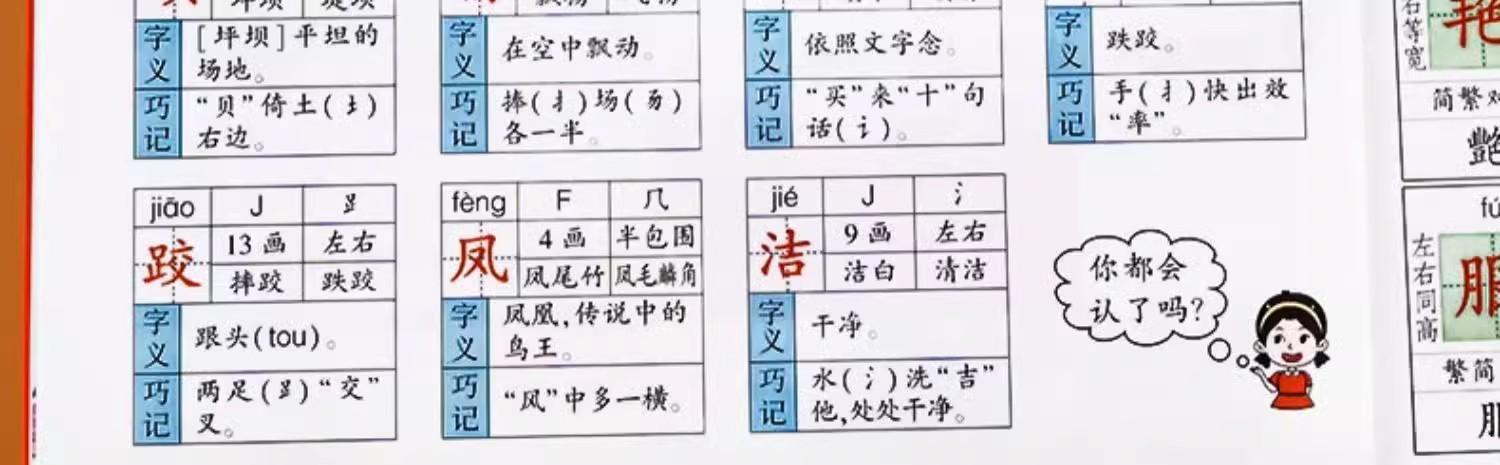 坪坝 堤坝
字义 [坪坝]平坦的
场地。
巧记 “贝”倚土(土)
右边。
字义 在空中飘动。
巧记 捧(扌)场(㐆)
各一半。
字义 依照文字念。
巧记 “买”来“十”句
话(讠)。
字义 跌跤。
巧记 手(扌)快出效
“率”。
jiāo J ⻊
跤 13画 左右
摔跤 跌跤
字义 跟头(tou)。
巧记 两足(⻊)“交”
叉。
fèng F 几
凤 4画 半包围
凤尾竹 凤毛麟角
字义 凤凰,传说中的
鸟王。
巧记 “风”中多一横。
jié J 氵
洁 9画 左右
洁白 清洁
字义 干净。
巧记 水(氵)洗“吉”
他,处处干净。
你都会
认了吗?
右等宽
艳
简繁对
艷
fú
左右同高
服
繁简
服